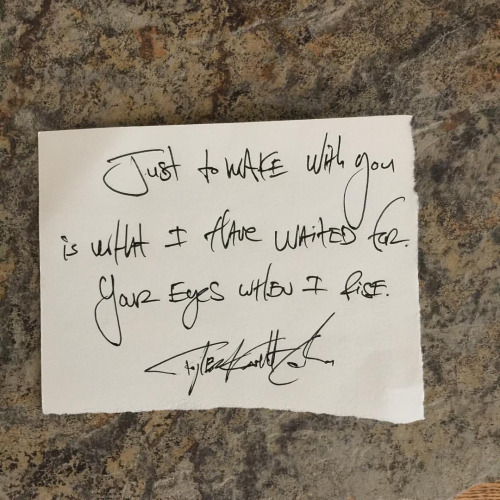 Just to wake with you
is what I have waited for.
Your eyes when I rise.
Tyler Knott